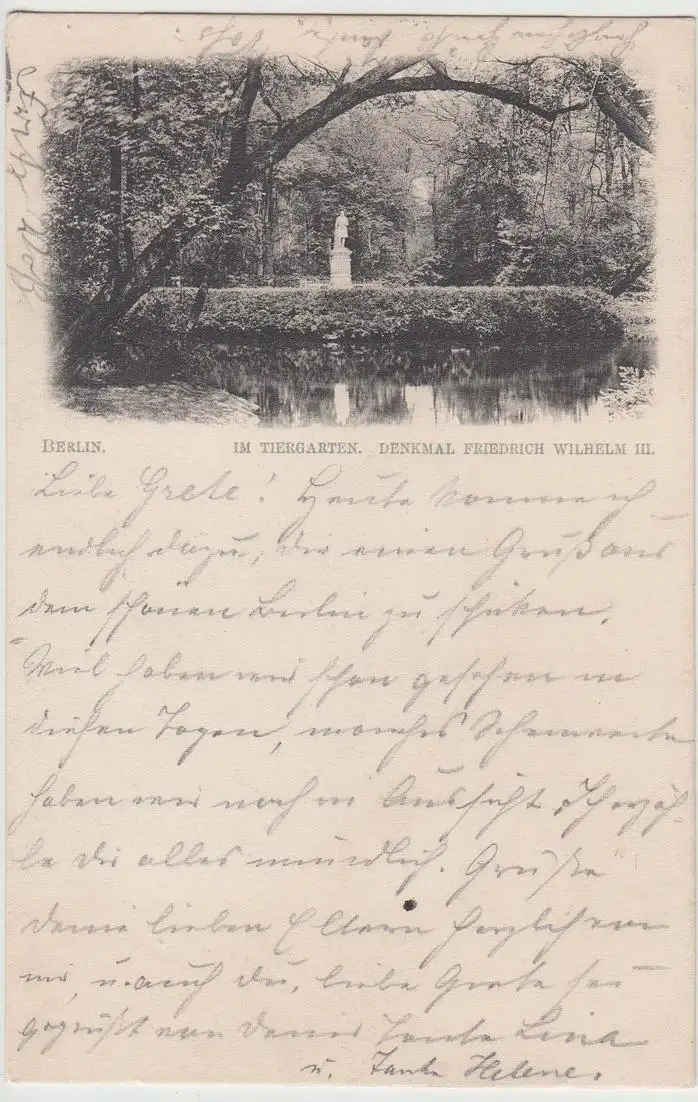 BERLIN. IM TIERGARTEN. DENKMAL FRIEDRICH WILHELM III.
Liebe Grete! Heute komme ich
endlich dazu, dir einen Gruß aus
dem schönen Berlin zu schicken.
Viel haben wir schon gesehen in
diesen Tagen, manches Sehenswerte
haben wir noch in Aussicht. Ich erzäh-
le dir alles mündlich. Grüße
deine lieben Eltern herzlich von
mir, u. auch du, liebe Grete sei
gegrüßt von deiner Tante Lina
u. Tante Helene.